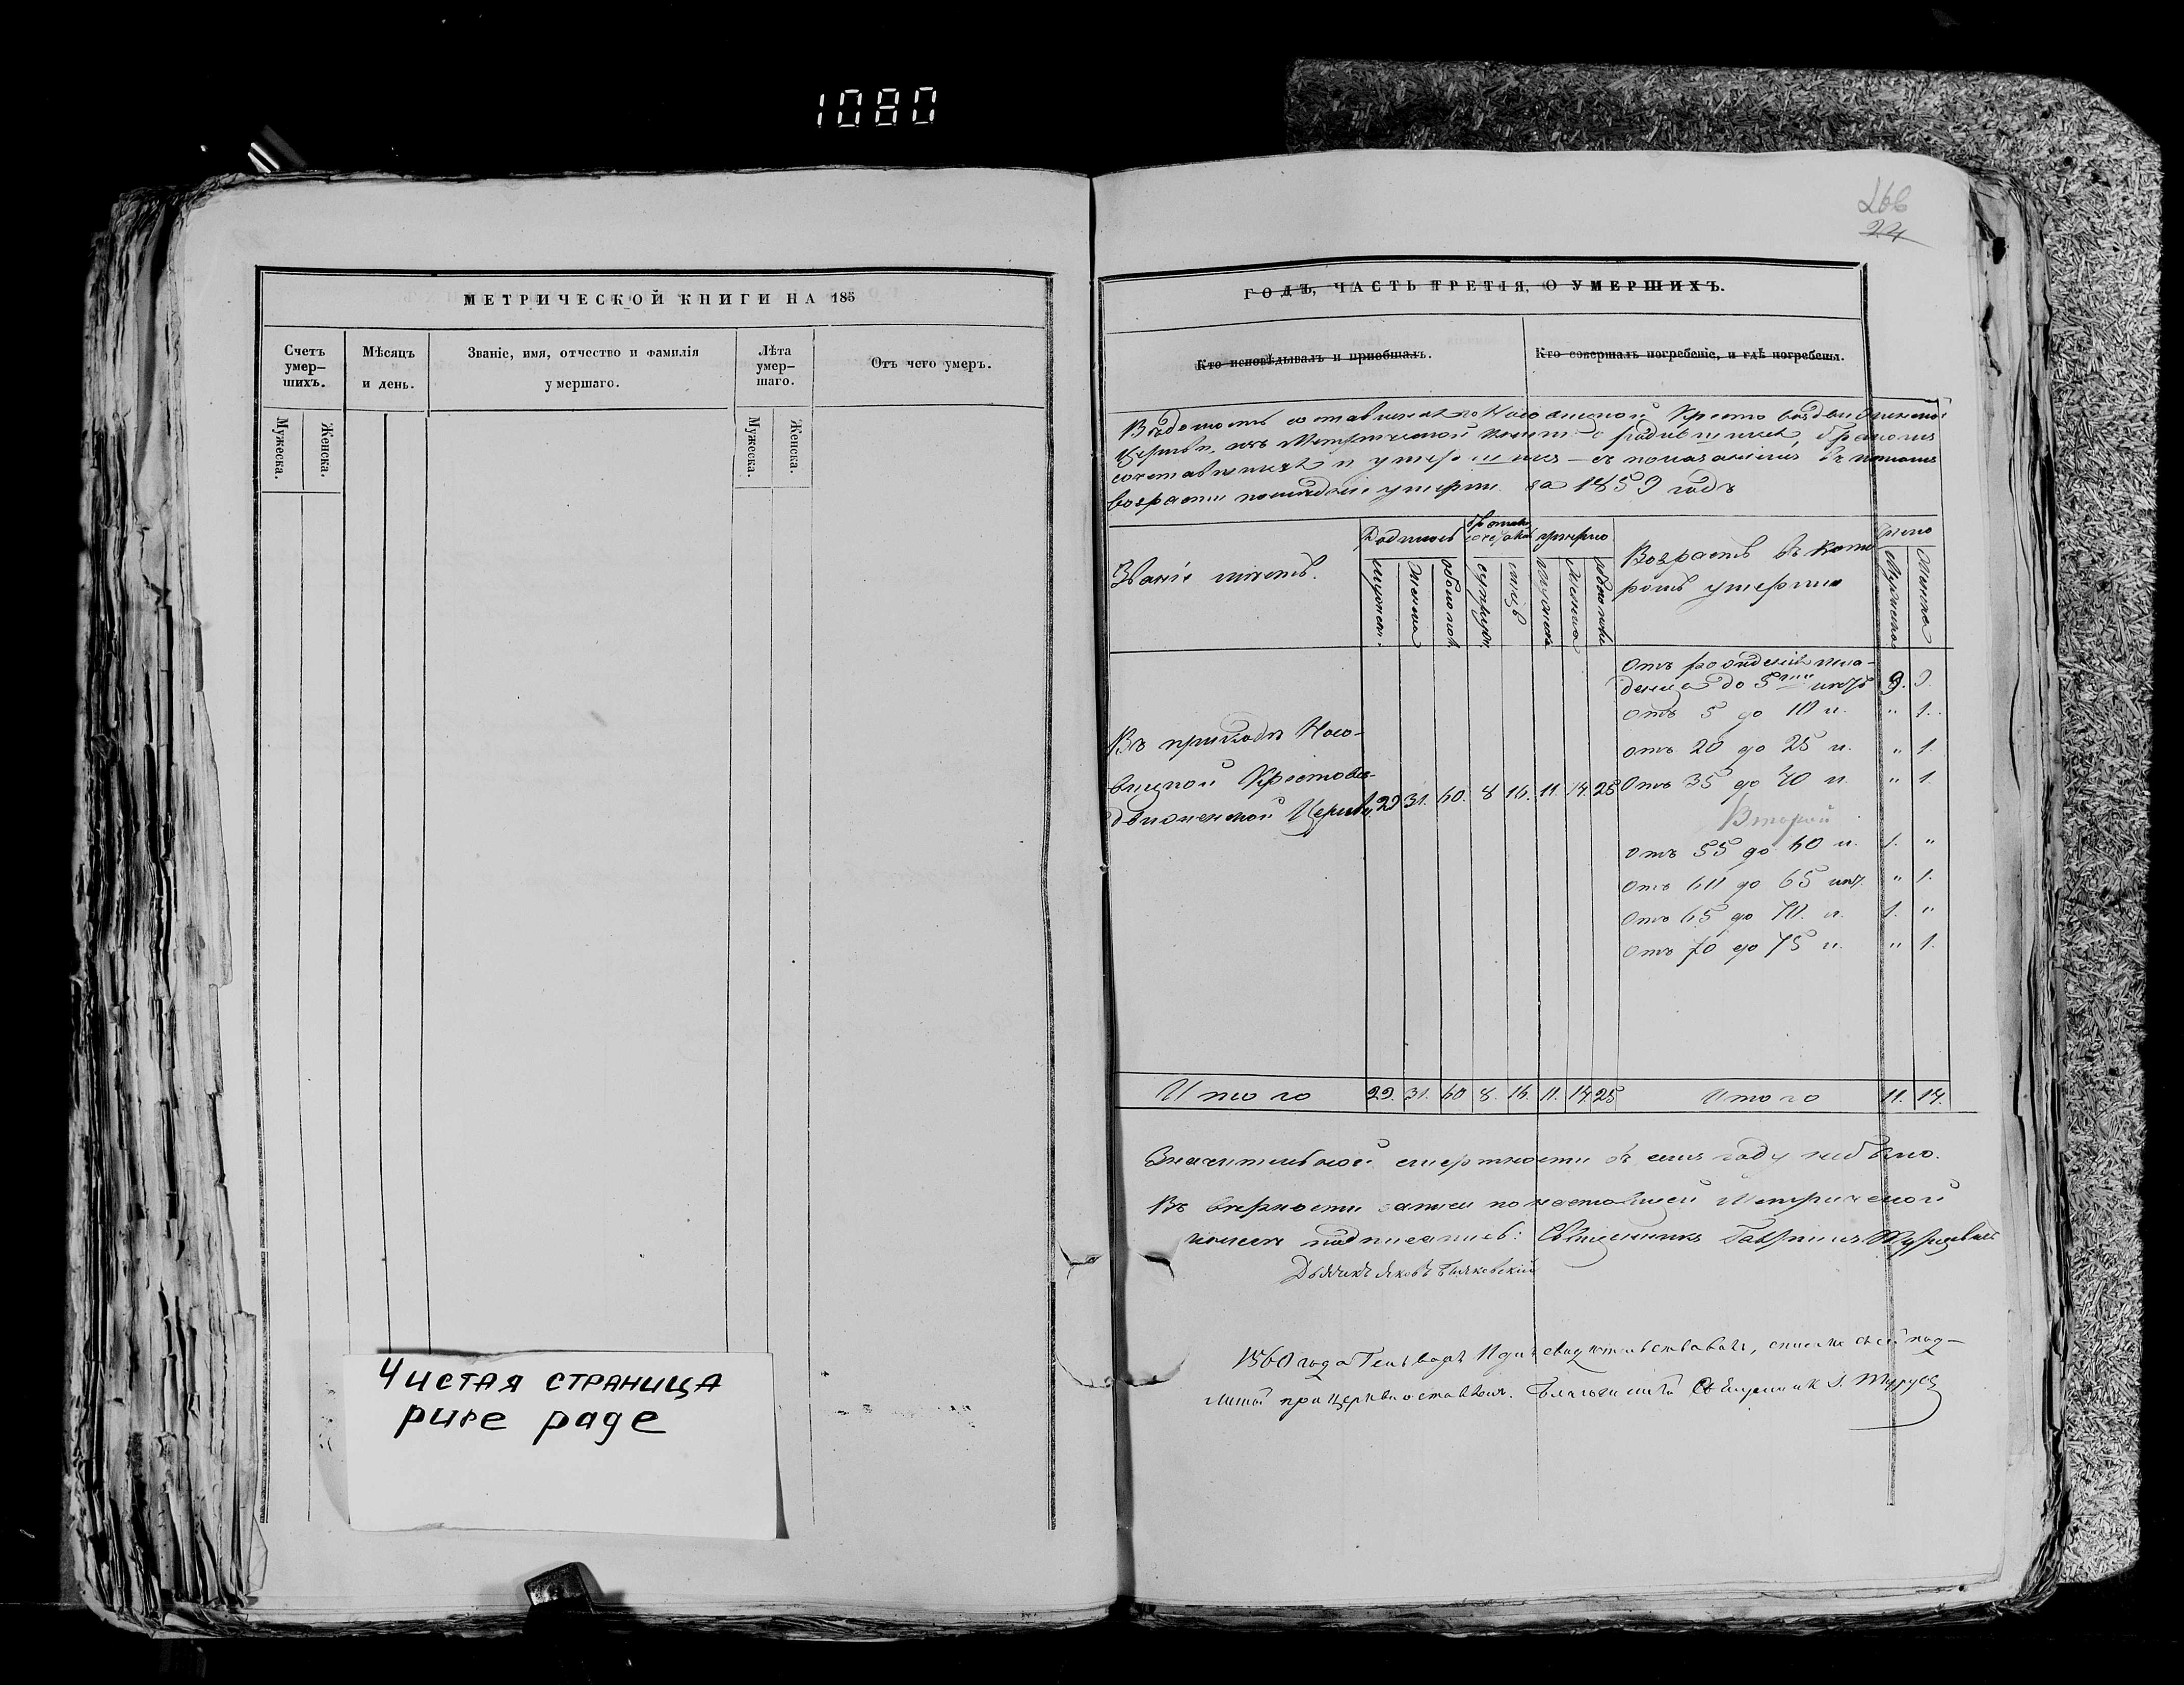 1080
МЕТРИЧЕСКОЙ КНИГИ НА 185
Счетъ умер-шихъ.
Мѣсяцъ и день.
Званіе, имя, отчество и фамилія умершаго.
Лѣта умер-шаго.
Отъ чего умеръ.
Мужеска.
Женска.
Мужеска.
Женска.
Чистая страница
pure page
24
ГОДЪ, ЧАСТЬ ТРЕТІЯ, О УМЕРШИХЪ.
Кто исповѣдывалъ и пріобщалъ.
Кто совершалъ погребеніе, и гдѣ погребены.
Вѣдомость составленная по Кресто воздвиженской
церкви, изъ Метрической книги о родившихся, бракомъ
сочетавшихся и умершихъ – съ показаніемъ въ какомъ
возрастѣ умерли за 1859 годъ
Званіе мѣстъ.
Родилось
умерло
Возрастъ въ кото
ромъ умерли
Число
Женска
обоего пола
супруж.
лицъ
Мужеска
Женска
Отъ рожденія мла-
денца до 5ти лѣтъ 9. 9.
Отъ 5 до 10 л. " 1.
Отъ 20 до 25 л. " 1.
Отъ 35 до 40 л. " 1.
Второй
Отъ 55 до 60 л. 1. "
Отъ 60 до 65 лѣт. " 1.
Отъ 65 до 70. л. 1. "
Отъ 70 до 75 л. " 1.
Въ приходѣ Носо-
вицкой Крестовоз-
движенской Церкви 29 31. 60. 8 16. 11. 14. 25
Итого 29. 31. 60 8. 16. 11. 14 25 Итого 11. 14.
Значительной смертности въ семъ году не было.
Въ вѣрности записи по настоящей Метрической
книгѣ подписались: Священникъ Гавріилъ
Дьячикъ Яковъ
1860 года Генваря свидѣтельствовалъ,
при церкви оставилъ. Благочинный Священник